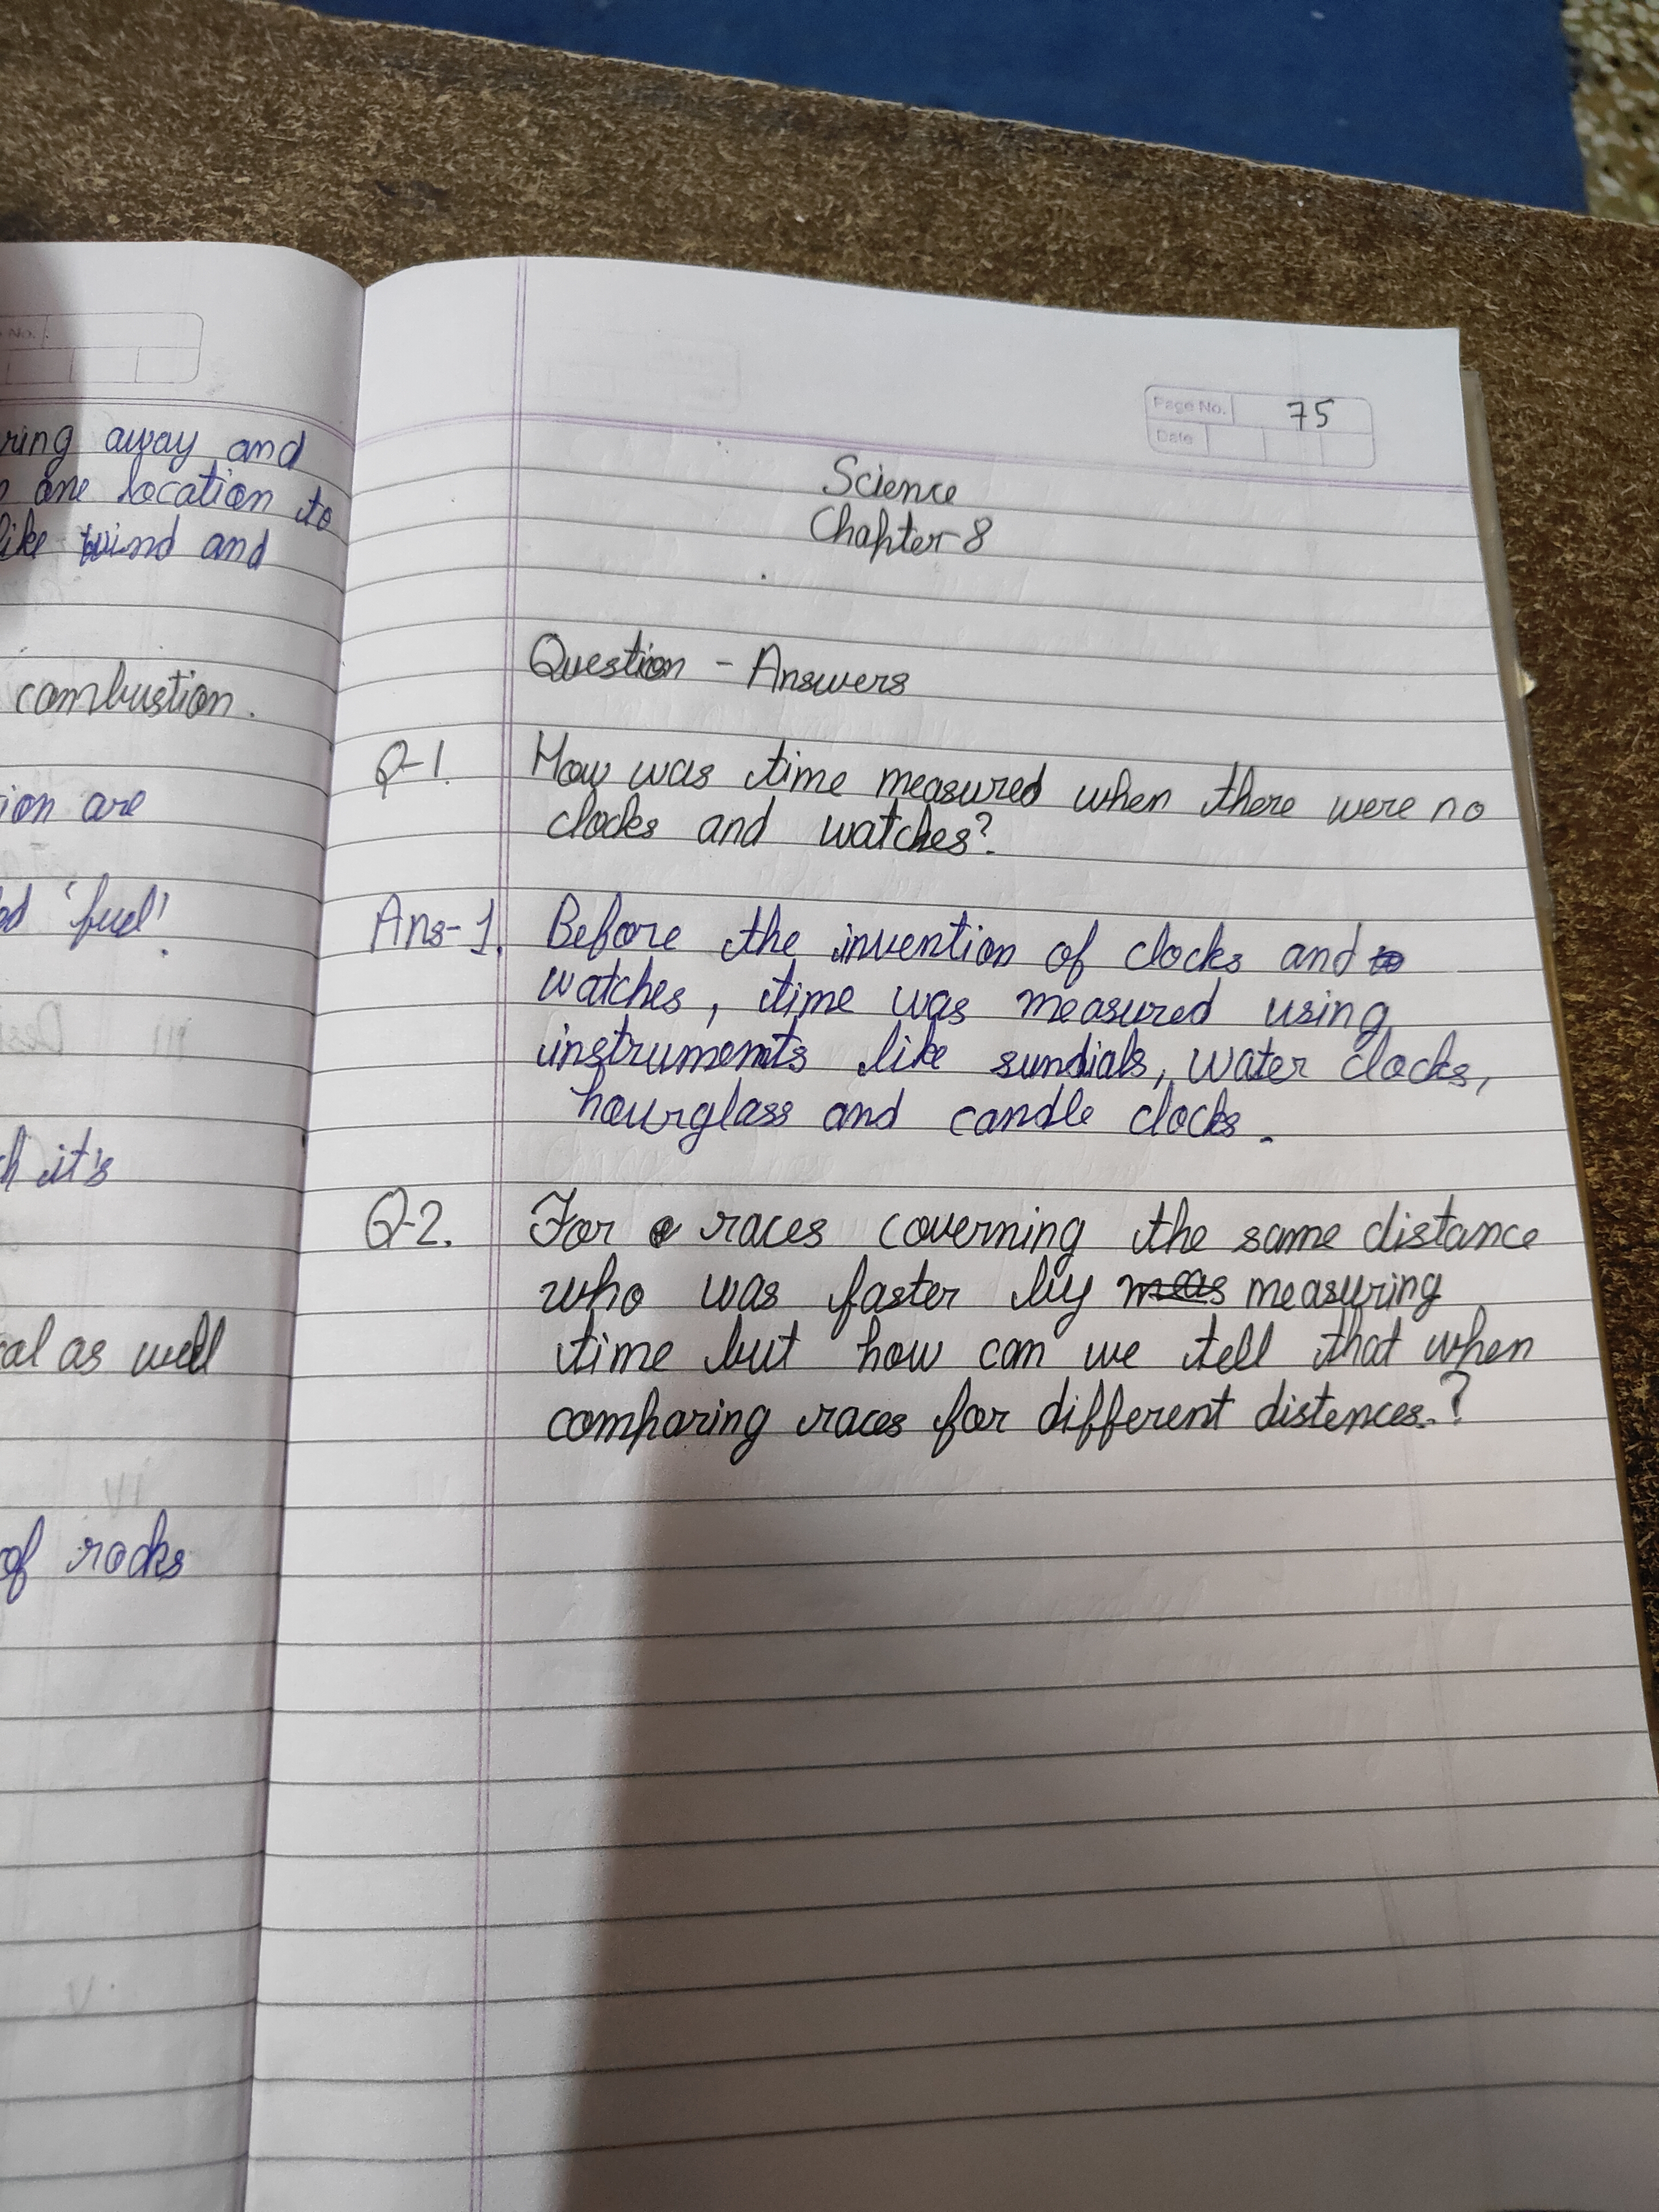 No.
ring away and
one location to
like wind and
combustion.
ion are
ed 'fuel'.
it's
al as well
of rocks
Page No. 75
Date
Science
Chapter-8
Question - Answers
Q-1. How was time measured when there were no
clocks and watches?
Ans-1. Before the invention of clocks and
watches, time was measured using
instruments like sundials, water clocks,
hourglass and candle clocks.
Q-2. For races coverning the same distance
who was faster by meas measuring
time but how can we tell that when
comparing races for different distences.?